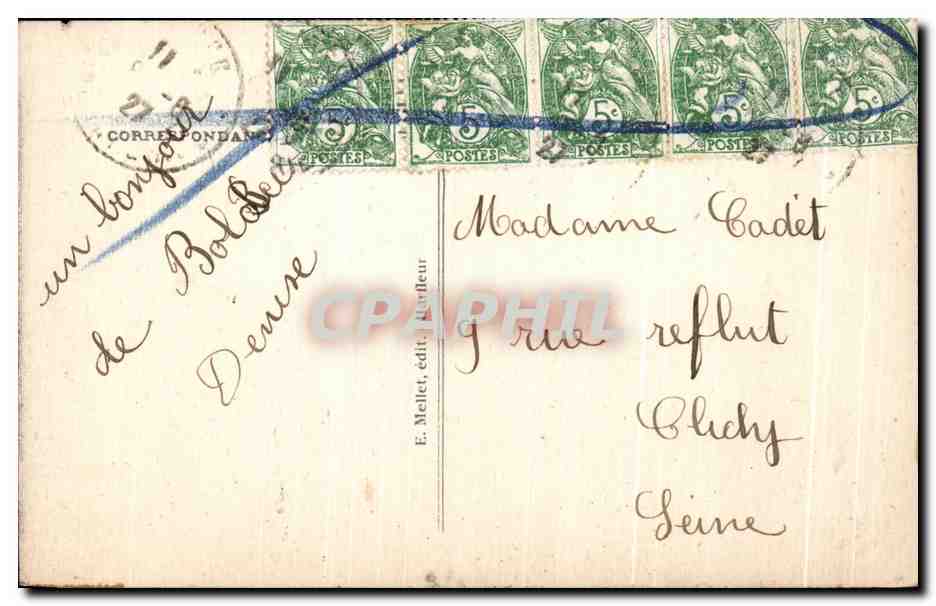 11
27
CORRESPONDANC
5c 5c 5c 5c 5c
POSTES POSTES POSTES POSTES POSTES
un bonjour
de Bolbec
Denise
E. Mellet, édit. Harfleur
CPAPHIL
Madame Cadet
9 rue reflut
Clichy
Seine